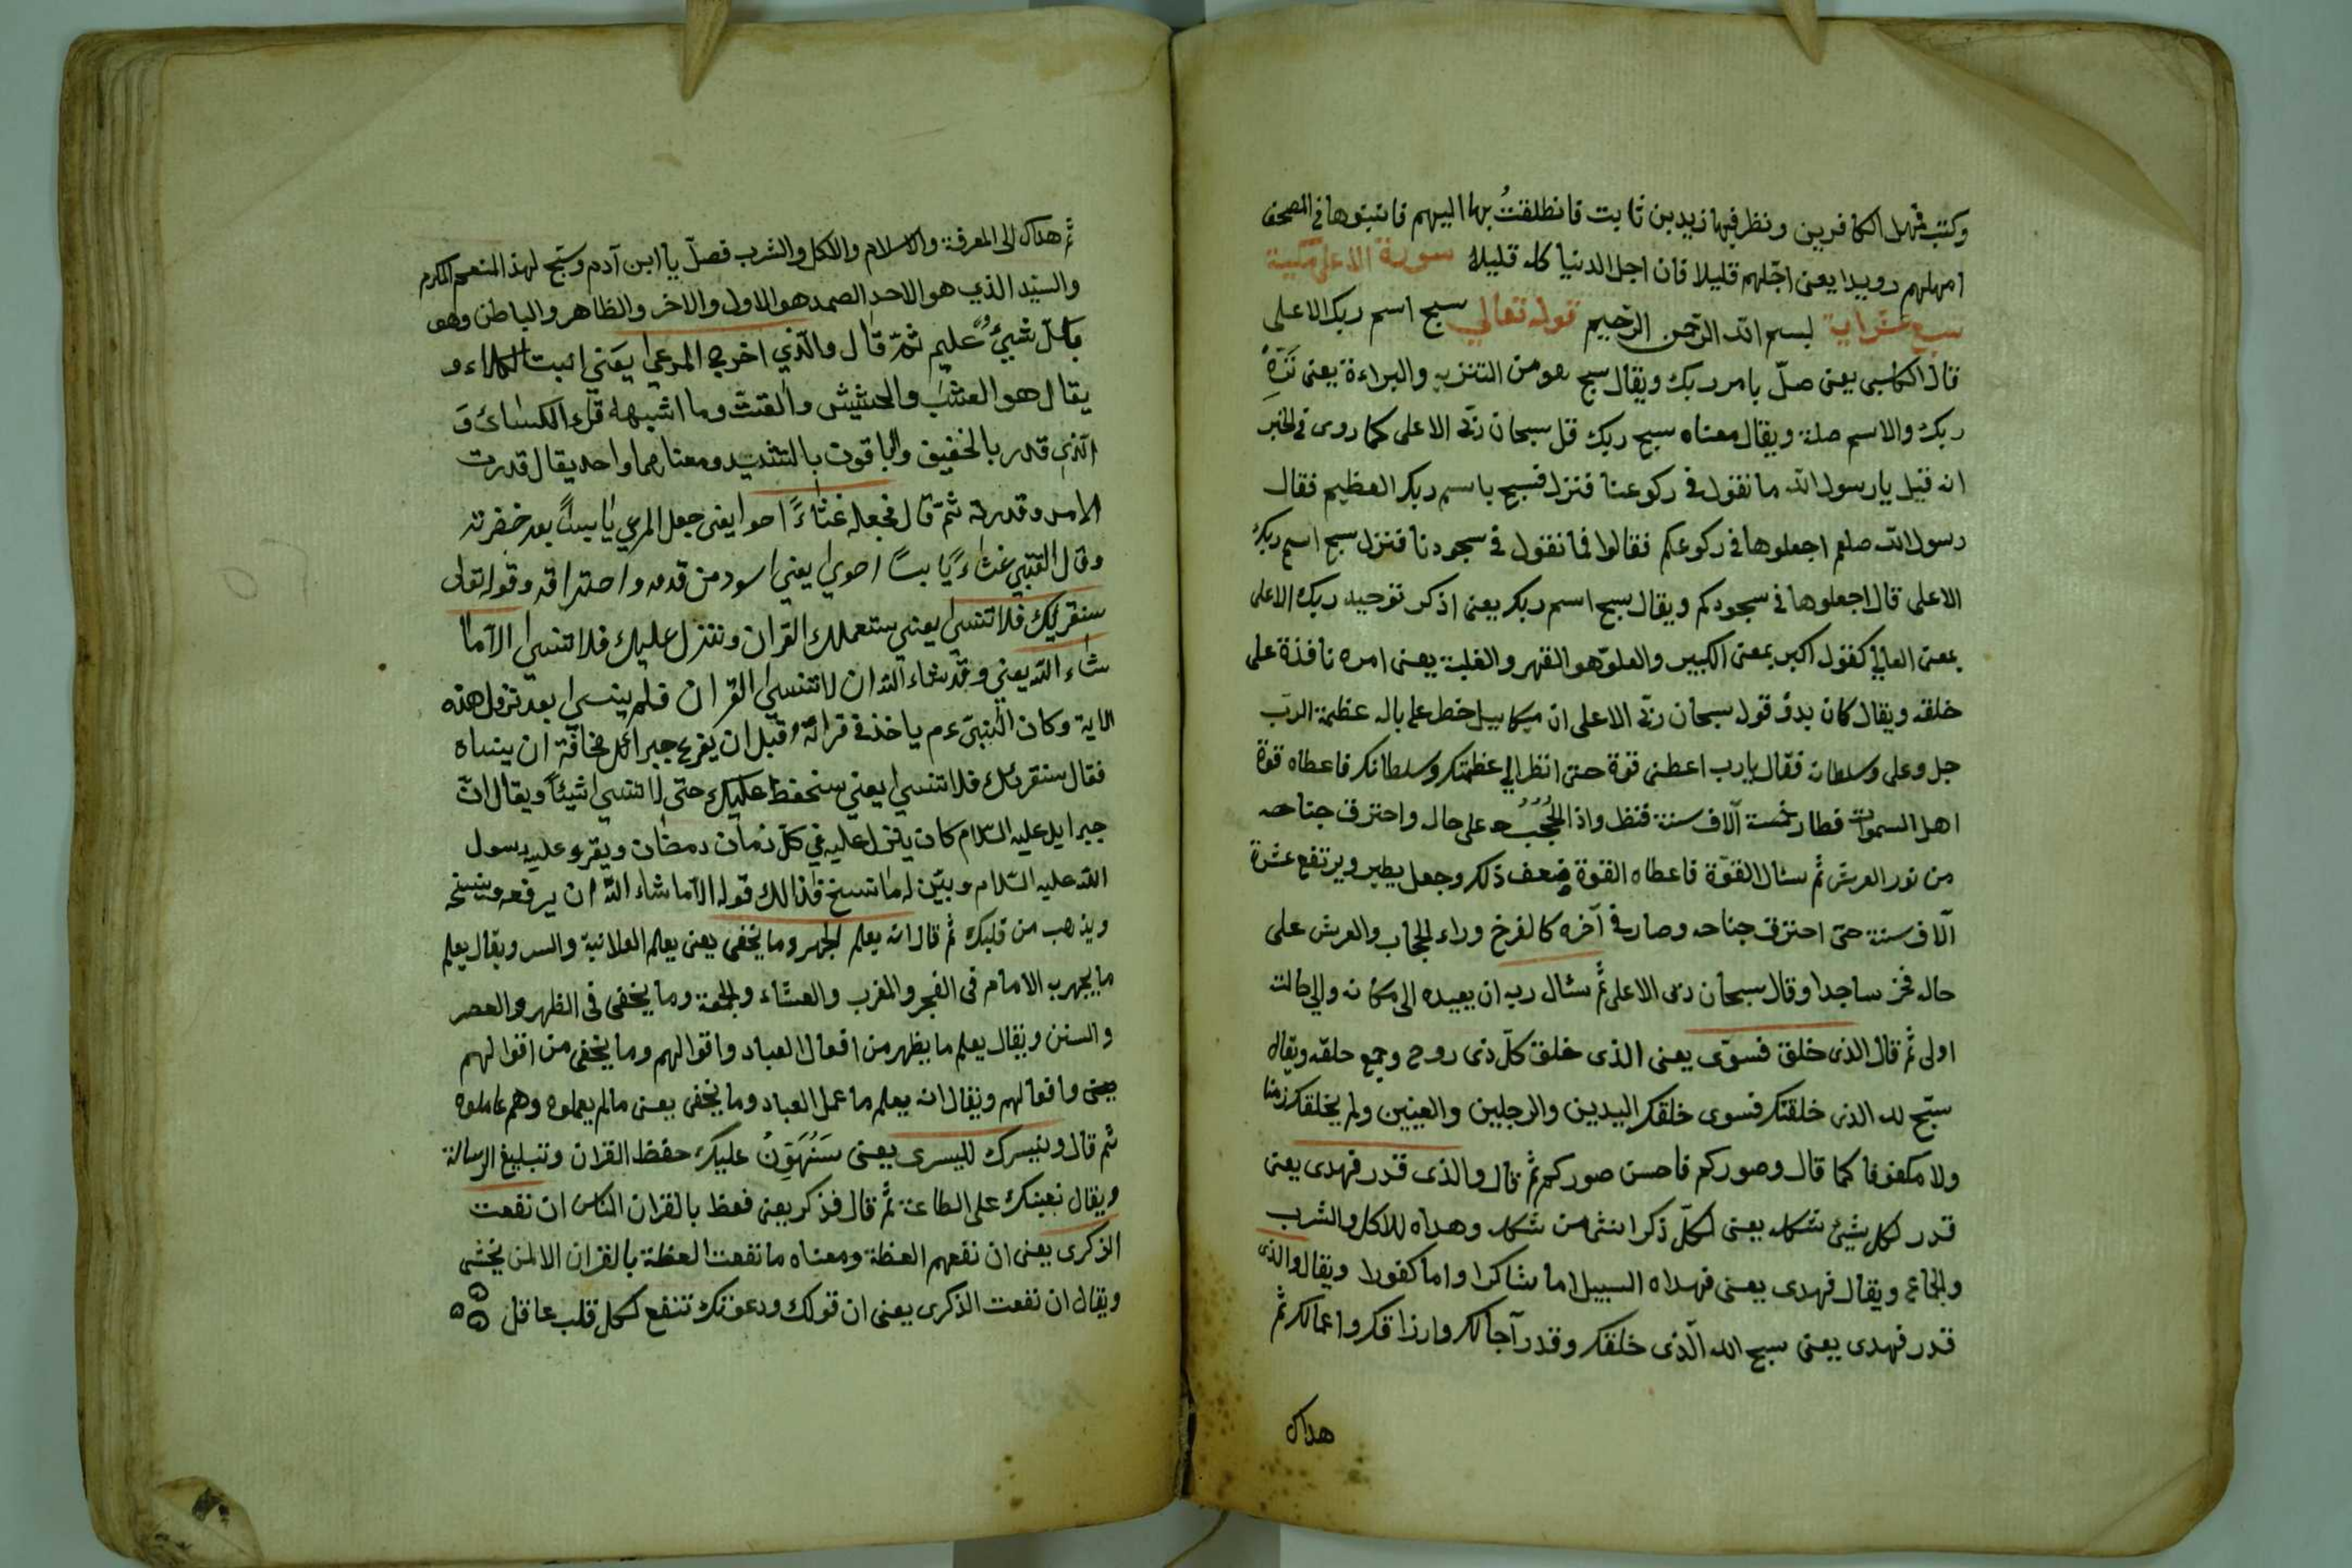 وكتب فمهل الكافرين ونظر فيها زيد بن ثابت فانطلقتُ بها اليهم فاثبتوها في المصحف
امهلهم رويدا يعني اجّلهم قليلا فان اجل الدنيا كله قليله سورة الاعلى مكية
سبع عشراية بسم الله الرحمن الرحيم قوله تعالى سبح اسم ربك الاعلى
قال الكلبي يعني صلّ بامر ربك ويقال سبح هو من التنزيه والبراءة يعني نَزِّهْ
ربك والاسم صلة ويقال معناه سبح ربك قل سبحان ربي الاعلى كما روى في الخبر
انه قيل يا رسول الله ما نقول في ركوعنا فنزل فسبح باسم ربك العظيم فقال
رسول الله صلعم اجعلوها في ركوعكم فقالوا فما نقول في سجودنا فنزل سبح اسم ربك
الاعلى قال اجعلوها في سجودكم ويقال سبح اسم ربك يعني اذكر توحيد ربك الاعلى
بمعنى العالي كقوله اكبر بمعنى الكبير والعلوّ هو القهر والغلبة يعني امره نافذة على
خلقه ويقال كان بدؤ قول سبحان ربي الاعلى ان ميكاييل خطر على باله عظمة الرب
جل وعلى وسلطانه فقال يا رب اعطني قوة حتى انظر الى عظمتك وسلطانك فاعطاه قوة
اهل السموات فطار خمسة آلاف سنة فنظر واذا الحُجُبُ على حاله واحترق جناحه
من نور العرش ثم سئال القوّة فاعطاه القوة ضعف ذلك وجعل يطير ويرتفع عشرة
آلاف سنة حتى احترق جناحه وصار في آخره كالفرخ وراء الحجاب والعرش على
حاله فخر ساجدا وقال سبحان ربى الاعلى ثم سئال ربه ان يعيده الى مكانه والى حالته
اولى ثم قال الذى خلق فسوّى يعنى الذى خلق كلّ ذى روح وجمع خلقه ويقال
سبّح لله الذى خلقتك فسوى خلقك اليدين والرجلين والعينين ولم يخلقك زمنا
ولا مكفوفا كما قال وصوركم فاحسن صوركم ثم قال والذى قدر فهدى يعنى
قدر لكل شيئ شكله يعنى لكلّ ذكر انثى من شكله وهداه للاكل والشرب
والجماع ويقال فهدى يعنى فهداه السبيل اما شاكرا واما كفورا ويقال والذى
قدر فهدى يعنى سبح الله الّذى خلقك وقدر آجالك وارزاقك واعمالك ثم
هداك
ثم هداك الى المعرفة والاسلام والاكل والشرب فصلّ يا ابن آدم وسبّح لهذ المنعم المكرم
والسيّد الذي هو الاحد الصمد هو الاول والاخر والظاهر والباطن وهو
بكلّ شيئٍ عليم ثمّ قال والّذي اخرج المرعى يعني انبت الكلاء و
يقال هو العشب والحشيش والقتّ وما اشبهه قرء الكسائ و
الّذي قدر بالخفيف والباقون بالتشديد ومعناهما واحد يقال قدرت
الامر وقدرته ثمّ قال فجعله غثاءً احوا يعني جعل المرعي يابساً بعد خضرته
وقال القتبي غثاءً يابساً احوي يعني اسود من قدمه واحتراقه وقوله تعالى
سنقريك فلا تنسي يعني سنعملك القران وننزل عليك فلا تنسي الاّ ما
شاء الله يعني وقد شاء الله ان لا تنسي القران فلم ينسي بعد نزول هذه
الاية وكان النّبيّ ءم ياخذ في قرائة قبل ان يفرع جبرائل مخافة ان ينساه
فقال سنقرئك فلا تنسي يعني سنحفظ عليك حتي لا تنسي شيئاً ويقال انّ
جبرايل عليه السّلام كان ينزل عليه في كلّ زمان رمضان ويقرء عليه رسول
الله عليه السّلام وبيّن له ما نسخ فذالك قوله الاّ ما شاء اللّه ان يرفعه وينسخه
ويذهب من قلبك ثم قال انه يعلم الجهر وما يخفى يعنى يعلم العلانية والسر ويقال يعلم
ما يجهر به الامام فى الفجر والمغرب والعشاء والجمعة وما يخفى فى الظهر والعصر
والسنن ويقال يعلم ما يظهر من افعال العباد واقوالهم وما يخفى من اقوالهم
يعنى وافعالهم ويقال انه يعلم ما عمل العباد وما يخفى يعنى ما لم يعملوه وهم عاملوه
ثم قال ونيسرك لليسرى يعنى سَنُهَوِّنُ عليك حفظ القران وتبليغ الرسالة
ويقال نعينك على الطاعة ثم قال فذكر يعنى فعظ بالقران الناس ان نفعت
الذكرى يعنى ان نفعهم العظة ومعناه ما نفعت العظة بالقران الا لمن يخشى
ويقال ان نفعت الذكرى يعنى ان قولك ودعوتك تنفع لكل قلب عاقل